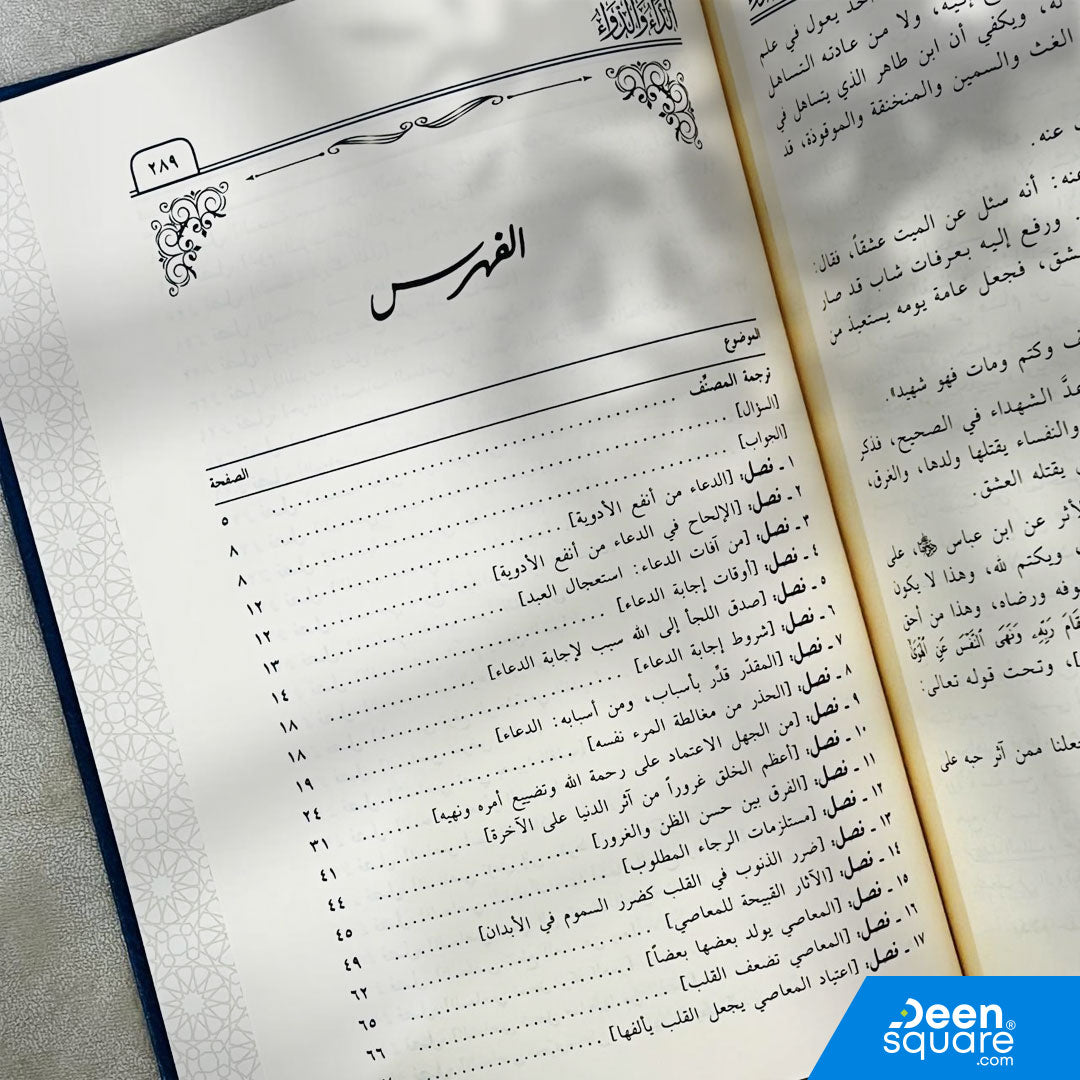 الداء والدواء
٢٨٩
الفهرس
الموضوع الصفحة
ترجمة المصنّف ٥
[السؤال] ٨
[الجواب] ٨
١ ـ فصل: [الدعاء من أنفع الأدوية] ١٢
٢ ـ فصل: [الإلحاح في الدعاء من أنفع الأدوية] ١٢
٣ ـ فصل: [من آفات الدعاء: استعجال العبد] ١٣
٤ ـ فصل: [أوقات إجابة الدعاء] ١٤
٥ ـ فصل: [صدق اللجأ إلى الله سبب لإجابة الدعاء] ١٨
٦ ـ فصل: [شروط إجابة الدعاء] ١٨
٧ ـ فصل: [المقدّر قدّر بأسباب، ومن أسبابه: الدعاء] ١٩
٨ ـ فصل: [الحذر من مغالطة المرء نفسه] ٢٤
٩ ـ فصل: [من الجهل الاعتماد على رحمة الله وتضييع أمره ونهيه] ٣١
١٠ ـ فصل: [أعظم الخلق غروراً من آثر الدنيا على الآخرة] ٤١
١١ ـ فصل: [الفرق بين حسن الظن والغرور] ٤٤
١٢ ـ فصل: [مستلزمات الرجاء المطلوب] ٤٥
١٣ ـ فصل: [ضرر الذنوب في القلب كضرر السموم في الأبدان] ٤٩
١٤ ـ فصل: [الآثار القبيحة للمعاصي] ٦٢
١٥ ـ فصل: [المعاصي يولد بعضها بعضاً] ٦٥
١٦ ـ فصل: [المعاصي تضعف القلب] ٦٦
١٧ ـ فصل: [اعتياد المعاصي يجعل القلب يألفها]
يعول في علم
إليه، ولا من عادته التساهل
له، ويكفي أن ابن طاهر الذي يتساهل في
الغث والسمين والمنخنقة والموقوذة، قد
عنه.
عنه: أنه سئل عن الميت عشقاً، فقال:
ورفع إليه بعرفات شاب قد صار
فجعل عامة يومه يستعيذ من
وكتم ومات فهو شهيد».
عدَّ الشهداء في الصحيح، فذكر
والنفساء يقتلها ولدها، والغرق،
يقتله العشق.
عن ابن عباس ، على
ويكتم لله، وهذا لا يكون
ورضاه، وهذا من أحق
رَبِّهِۦ وَنَهَى ٱلنَّفْسَ عَنِ ٱلْهَوَىٰ
وتحت قوله تعالى:
ممن آثر حبه على
Deen®
square
.com